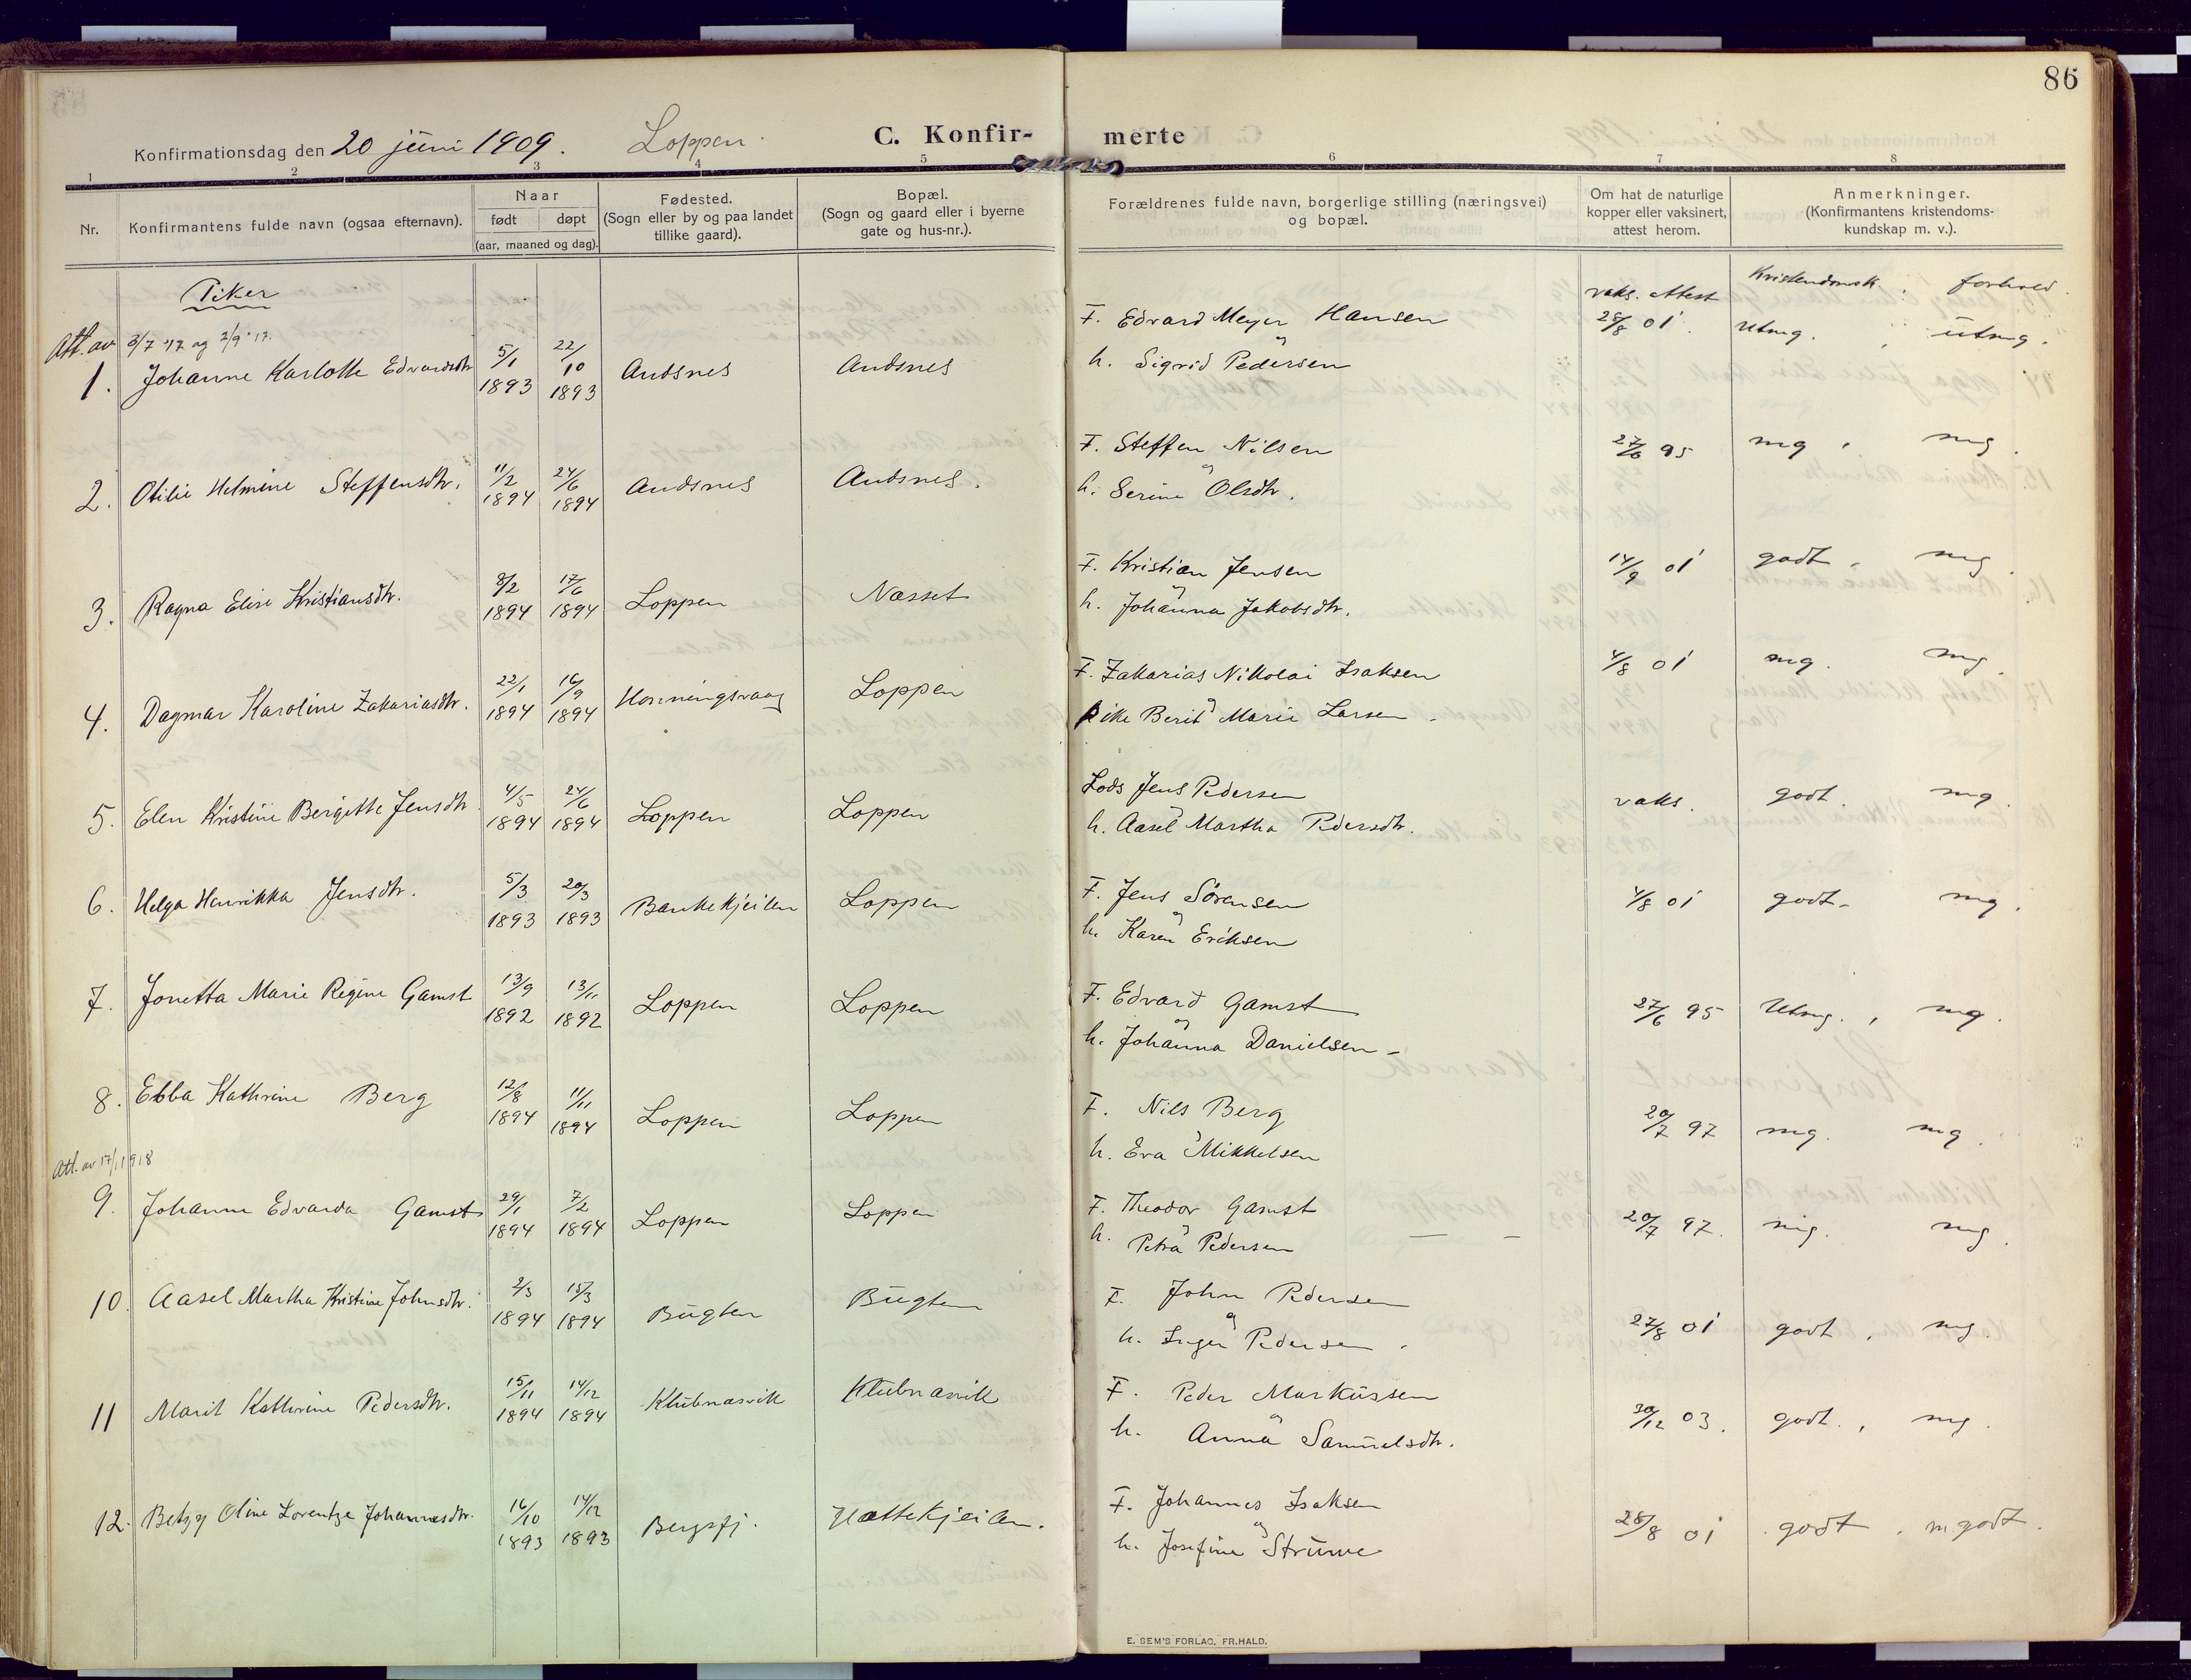 86
Konfirmationsdag den 20 juni 1909. Loppen. C. Konfir- merte
1 2 3 4 5 6 7 8
Nr. Konfirmantens fulde navn (ogsaa efternavn). Naar født døpt (aar, maaned og dag). Fødested. (Sogn eller by og paa landet tillike gaard). Bopæl. (Sogn og gaard eller i byerne gate og hus-nr.). Forældrenes fulde navn, borgerlige stilling (næringsvei) og bopæl. Om hat de naturlige kopper eller vaksinert, attest herom. Anmerkninger. (Konfirmantens kristendoms- kundskap m. v.).
Piker
vaks. attest Kristendomsk. forhold.
Att. av 3/7 '17 og 2/9 '17.
1. Johanne Karlotte Edvardsdtr 5/1 1893 22/10 1893 Andsnes Andsnes F. Edvard Meyer Hansen og
h. Sigrid Pedersen 28/8 01. Utmg. , utmg.
2. Otilie Helmine Steffensdtr. 11/2 1894 24/6 1894 Andsnes Andsnes. F. Steffen Nilsen og
h. Serine Olsdtr. 27/6 95 mg , mg.
3. Ragna Elise Kristiansdtr. 8/2 1894 17/6 1894 Loppen Næsset F. Kristian Jensen
h. Johanna Jakobsdtr. 14/9 01 godt , mg.
4. Dagmar Karoline Zakariasdtr. 22/1 1894 16/9 1894 Honningsvaag Loppen F. Zakarias Nikolai Isaksen
pike Berit Marie Larsen. 4/8 01 mg. mg.
5. Elen Kristine Bergitte Jensdtr. 4/5 1894 24/6 1894 Loppen Loppen Lods Jens Pedersen
h. Aasel Martha Pedersdtr. vaks. godt. mg.
6. Helga Henrikka Jensdtr. 5/3 1893 20/3 1893 Bankekjeilen Loppen F. Jens Sörensen og
h. Karen Eriksen 4/8 01 godt - mg.
7. Jonetta Marie Regine Gamst 13/9 1892 13/11 1892 Loppen Loppen F. Edvard Gamst og
h. Johanna Danielsen - 27/6 95 Utmg. , mg.
8. Ebba Kathrine Berg 12/8 1894 11/11 1894 Loppen Loppen F. Nils Berg
h. Eva Mikkelsen 20/7 97 mg. mg.
Att. av 17/1 1918
9. Johanne Edvarda Gamst 29/1 1894 7/2 1894 Loppen Loppen F. Theodor Gamst
h. Petra Pedersen 20/7 97. mg. mg.
10. Aasel Martha Kristine Johnsdtr. 2/3 1894 15/3 1894 Bugten Bugten F. John Pedersen og
h. Inger Pedersen. 27/8 01 godt , mg.
11 Marit Kathrine Pedersdtr. 15/11 1894 14/12 1894 Klubnasvik Klubnasvik F. Peder Markussen og
h. Anna Samuelsdtr. 30/12 03. godt. , mg.
12. Betzy Oline Lorentze Johannesdtr. 16/10 1893 14/12 1893 Bergsfj. Hattekjeilen. F. Johannes Isaksen og
h. Josefine Struwe 28/8 01 godt , m godt.
E. SEM'S FORLAG, FR.HALD.